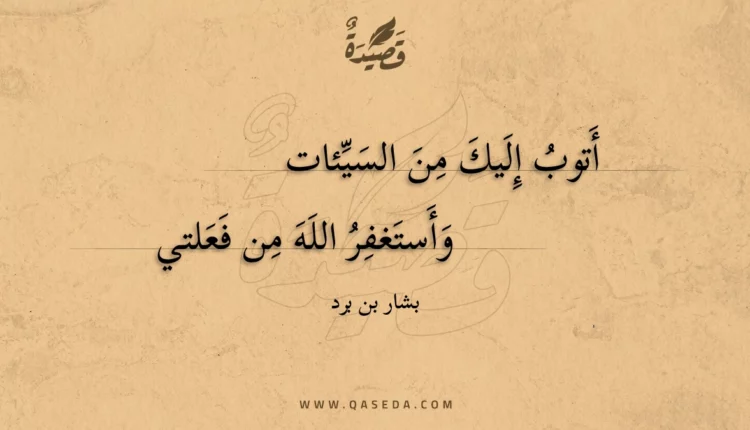 قَصِيدَةٌ
أَتوبُ إِلَيكَ مِنَ السَيِّئات
وَأَستَغفِرُ اللَهَ مِن فَعَلتي
بشار بن برد
WWW.QASEDA.COM